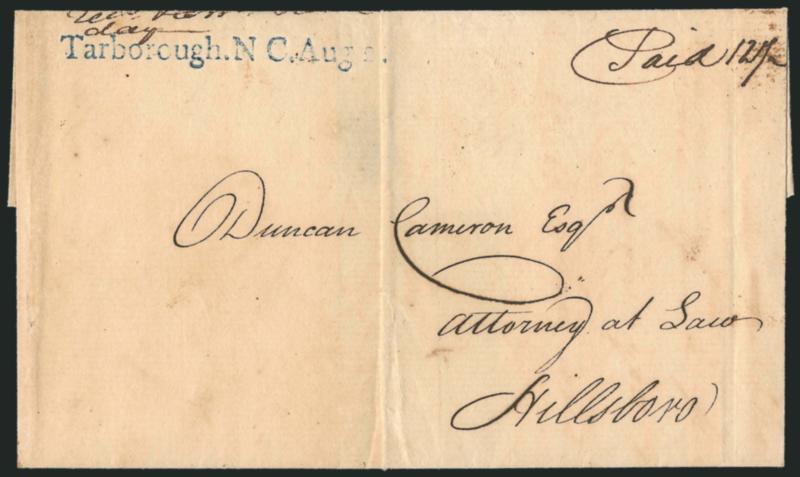 day
Tarborough. N C. Aug
Paid 12½
Duncan Cameron Esqr
Attorney at Law
Hillsboro